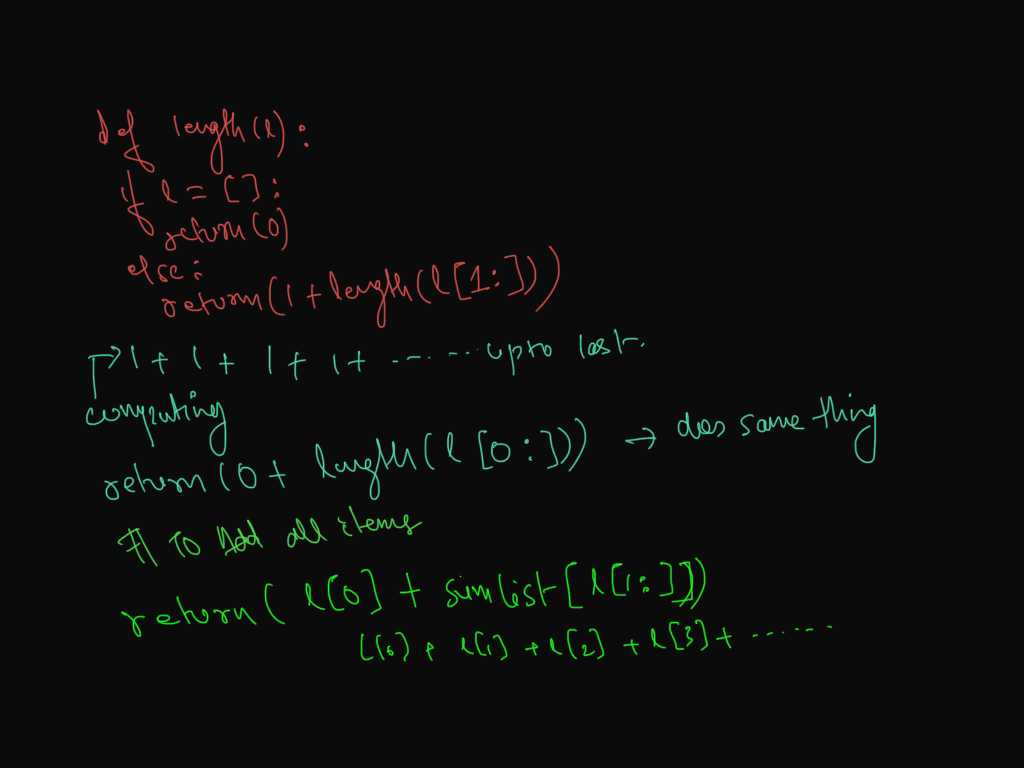 def length(l):
if l = []:
return(0)
else:
return(1+length(l[1:]))
1 + 1 + 1 + 1 + ........ upto last.
computing
return(0+ length(l[0:])) → does same thing
# To Add all items
return( l[0] + sumlist[l[1:]])
l[0] + l[1] + l[2] + l[3] + ......